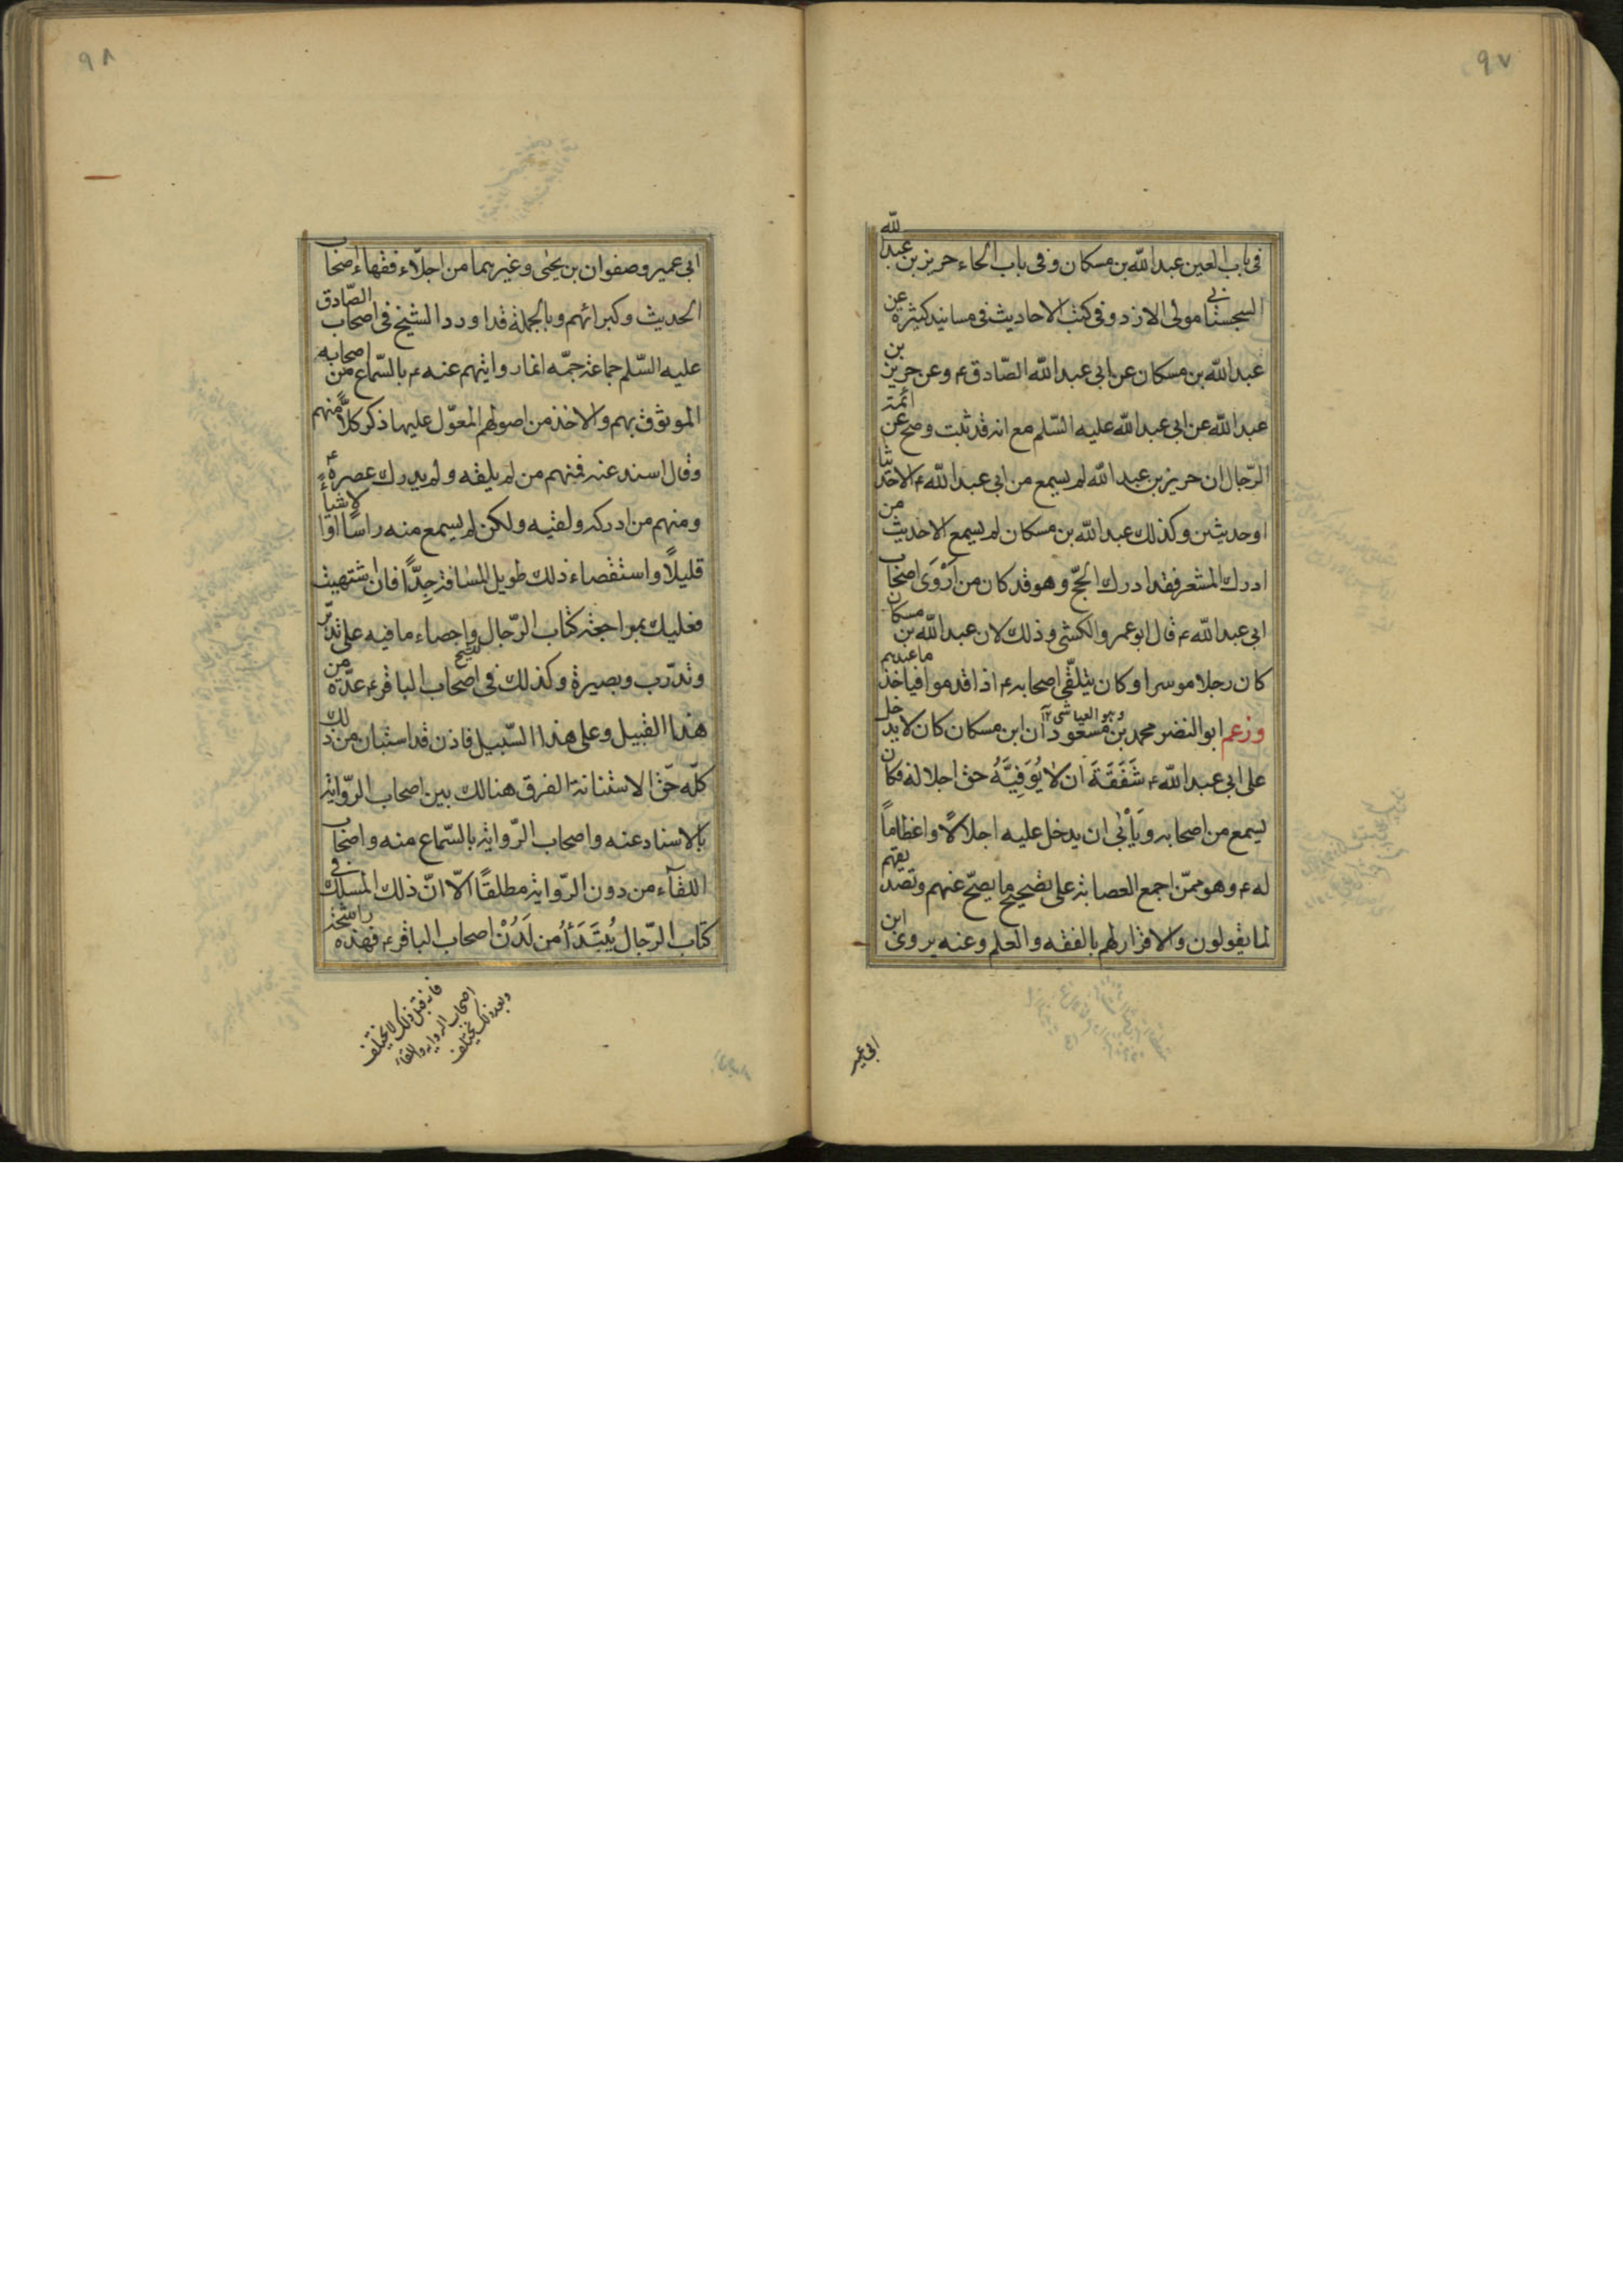 ٩٧
في باب العين عبد الله بن مسكان وفي باب الحاء حريز بن عبد الله
السجستاني مولى الازد وفي كتب الاحاديث في مسانيد كثيرة عن
عبد الله بن مسكان عن ابي عبد الله الصّادق ع وعن حريز بن
عبد الله عن ابي عبد الله عليه السّلم مع انه قد ثبت وصح عن ائمة
الرّجال ان حريز بن عبد الله لم يسمع من ابي عبد الله ع الا حديثا
او حديثين وكذلك عبد الله بن مسكان لم يسمع الا حديث من
ادرك المشعر فقد ادرك الحجّ وهو قد كان من اَرْوَى اصحاب
ابي عبد الله ع قال ابو عمرو الكشي وذلك لان عبد الله بن مسكان
كان رجلا موسرا وكان يتلقّى اصحابه ع اذا قدموا فياخذ ما عندهم
وزعم ابو النضر محمد بن مسعود ان ابن مسكان كان لا يدخل
وهو العياشي ١٢
على ابي عبد الله ع شَفَقَةَ ان لا يُوَفِيَّهُ حق اجلاله فكان
يسمع من اصحابه وَيَأْبى ان يدخل عليه اجلالاً واعظاماً
له ع وهو ممّن اجمع العصابة على تصحيح ما يصحّ عنهم وتصديقهم
لما يقولون والاقرار لهم بالفقه والعلم وعنه يروى ابن
ابي عمير
٩٨
ابي عمير وصفوان بن يحيى وغيرهما من اجلّاء فقهاء اصحاب
الحديث وكبرائهم وبالجملة قد اورد الشيخ في اصحاب الصّادق
عليه السّلم جماعة جمّه انما روايتهم عنه ع بالسّماع من اصحابه
الموثوق بهم والاخذ من اصولهم المعوّل عليها ذكر كلاًّ منهم
وقال اسند عنه فمنهم من لم يلقه ولم يدرك عصره ع
ومنهم من ادركه ولقيه ولكن لم يسمع منه راسًا او الا شيأ
قليلاً واستقصاء ذلك طويل المسافة جِدًّا فان اشتهيت
فعليك بمراجعة كتاب الرّجال للشيخ واحصاء ما فيه على تدبّر
وتدرّب وبصيرة وكذلك في اصحاب الباقر ع عدّة من
هذا القبيل وعلى هذا السّبيل فاذن قد استبان من ذلك
كلّه حّق الاستنانة الفرق هنالك بين اصحاب الرّواية
بالاسناد عنه واصحاب الرّواية بالسّماع منه واصحاب
اللقآء من دون الرّواية مطلقًا الّا انّ ذلك المسلك في
كتاب الرّجال يُبْتَدَأُ من لَدُنْ اصحاب الباقر ع فهذه راشحة
فانه قبل ذلك لا يختلف
اصحاب الرواية واللقاء
وبعد ذلك يختلف